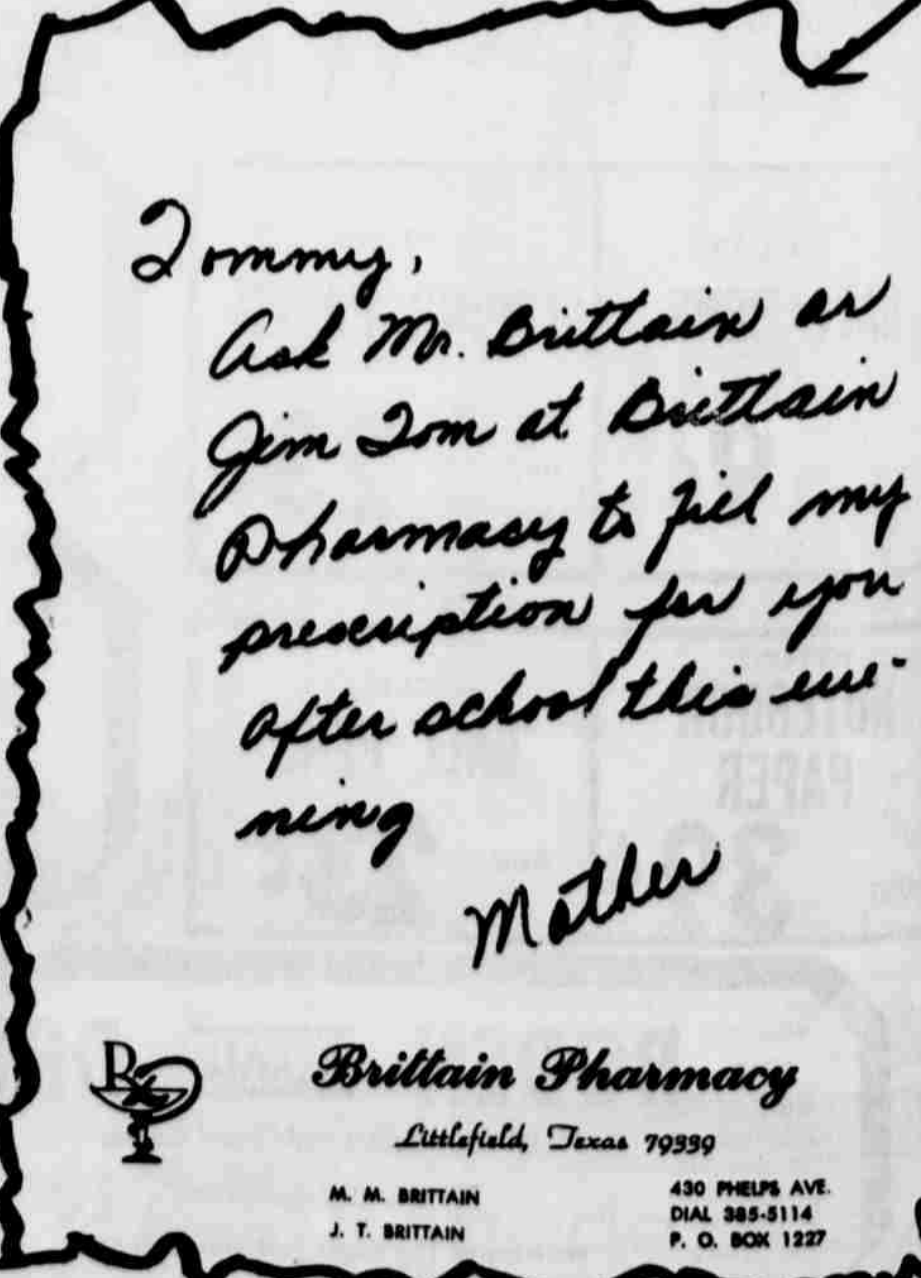 Tommy,
Ask Mr. Brittain or
Jim Tom at Brittain
Pharmacy to fill my
prescription for you
after school this eve-
ning
Mother
Brittain Pharmacy
Littlefield, Texas 79339
M. M. BRITTAIN
J. T. BRITTAIN
430 PHELPS AVE.
DIAL 385-5114
P. O. BOX 1227